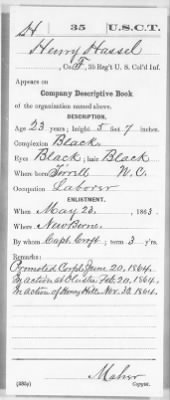 H | 35 | U.S.C.T.
Henry Hassel
, Co. F, 35 Reg't U. S. Col'd Inf.
Appears on
Company Descriptive Book
of the organization named above.
DESCRIPTION.
Age 23 years; height 5 feet 7 inches.
Complexion Black
Eyes Black; hair Black
Where born Tirrell N.C.
Occupation Laborer
ENLISTMENT.
When May 23, 1863.
Where NewBerne.
By whom Capt. Croft; term 3 y'rs.
Remarks:
Promoted Corpl. June 20, 1864.
In action at Olustee Feb. 20, 1864.
In action of Honey Hill Nov. 30, 1864.
Maher
(383g) Copyist.